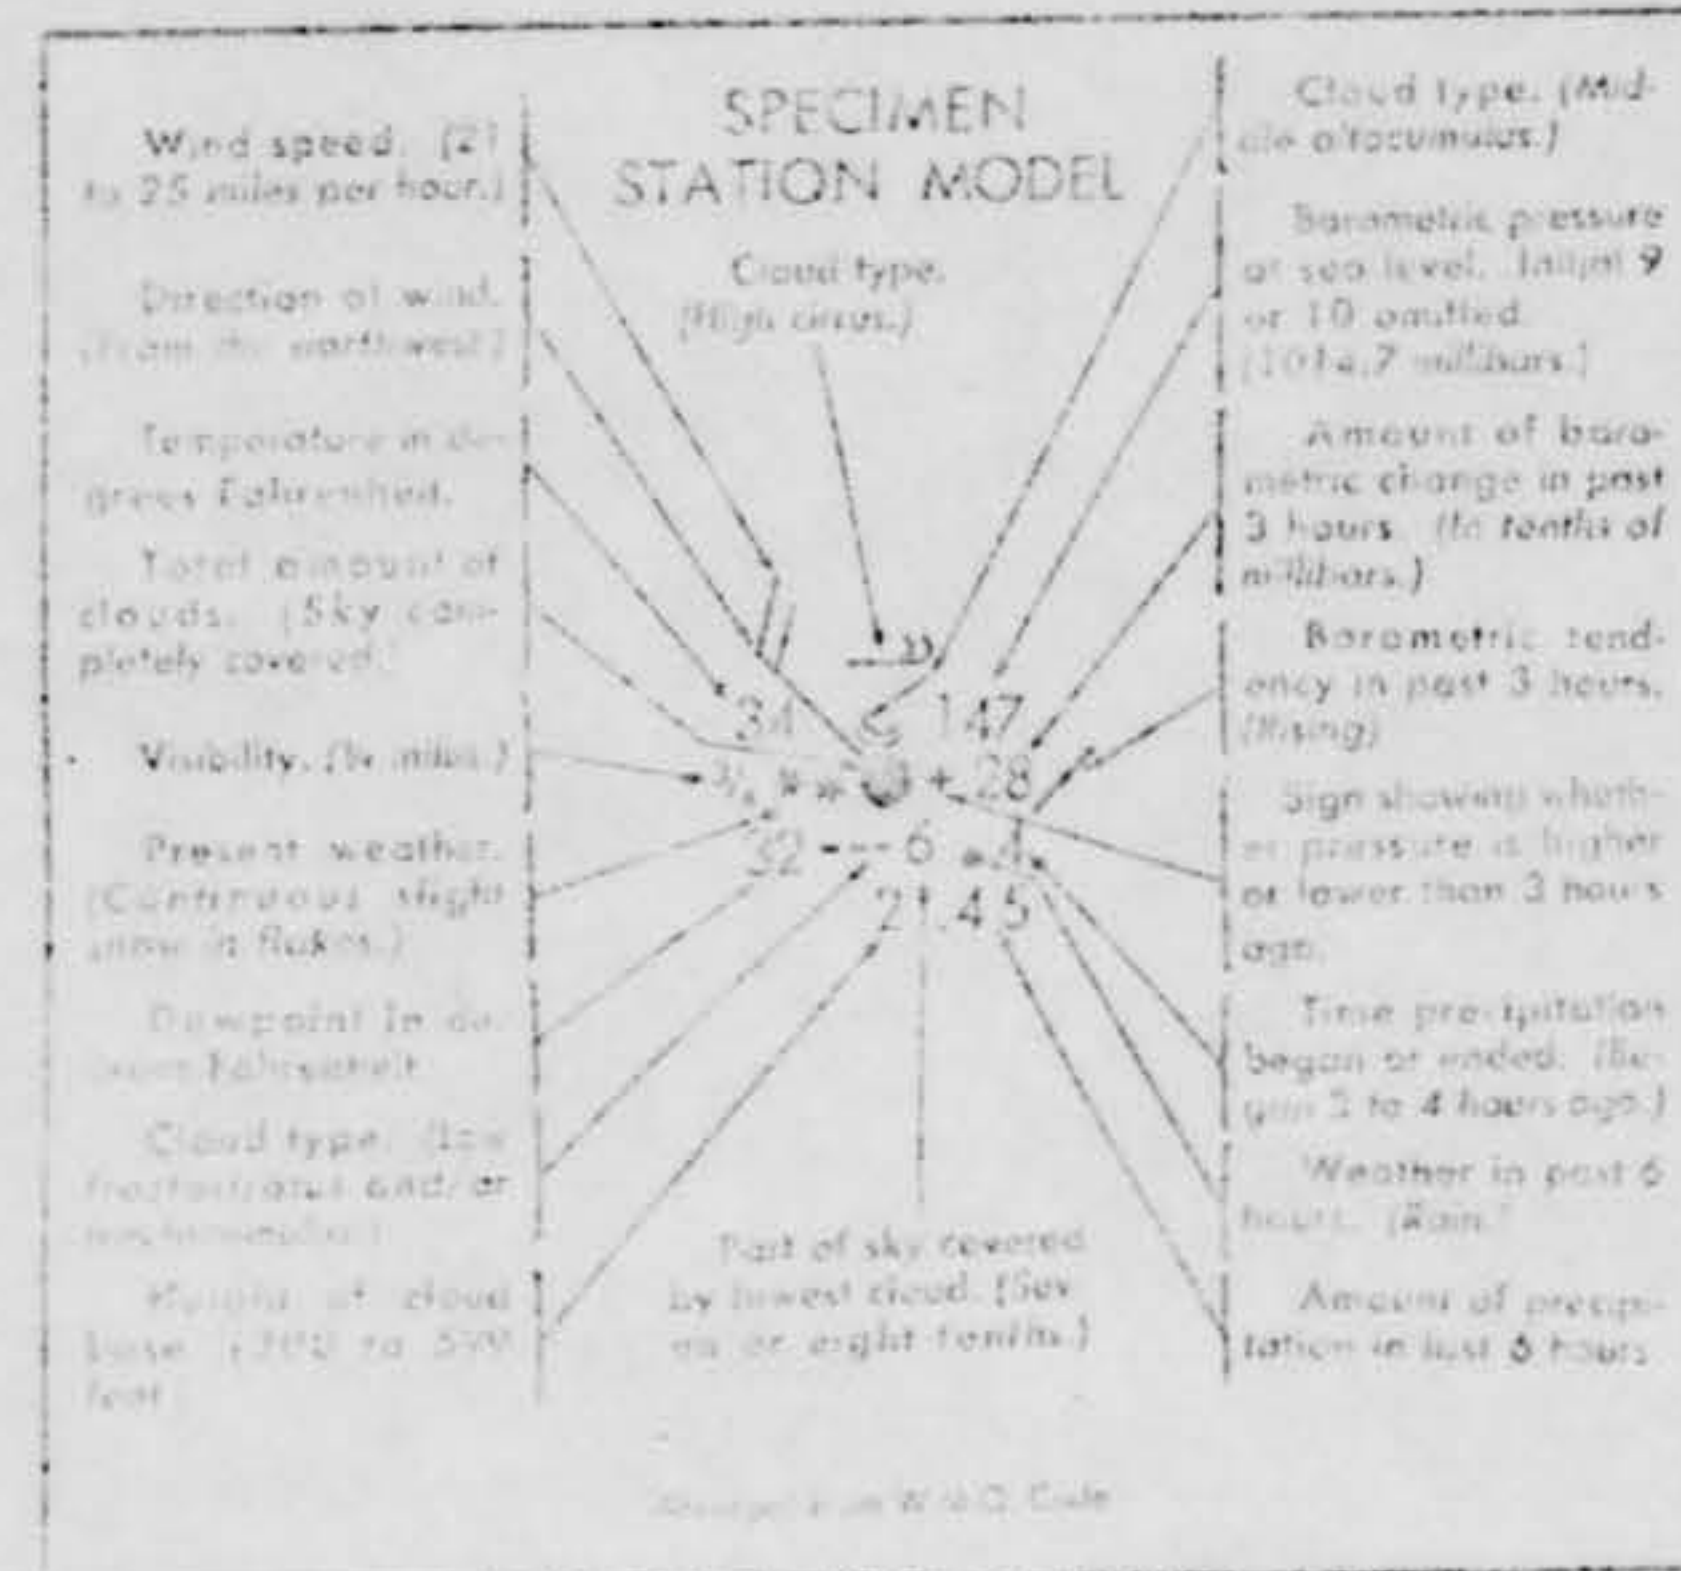 SPECIMEN
STATION MODEL
Wind speed. (21
to 25 miles per hour.)
Direction of wind.
(From the northwest)
Temperature in de-
grees Fahrenheit.
Total amount of
clouds. (Sky com-
pletely covered.)
Visibility. (¾ miles.)
Present weather.
(Continuous slight
snow in flakes.)
Dewpoint in de-
grees Fahrenheit
Cloud type. (Low
fractostratus and/or
Height of cloud
base. (300 to
feet
Cloud type.
(High cirrus.)
34 147
3/4 + 28
32 --- 6
21.45
Part of sky covered
by lowest cloud. (Sev
en or eight tenths.)
Cloud type. (Mid-
dle altocumulus.)
Barometric pressure
at sea level. Initial 9
or 10 omitted
(1014.7 millibars.)
Amount of baro-
metric change in past
3 hours. (In tenths of
millibars.)
Barometric tend-
ency in past 3 hours.
(Rising)
Sign showing wheth-
er pressure is higher
or lower than 3 hours
ago.
Time precipitation
began or ended. (Be-
gan 3 to 4 hours ago.)
Weather in past 6
hours. (Rain.)
Amount of precipi-
tation in last 6 hours
Code